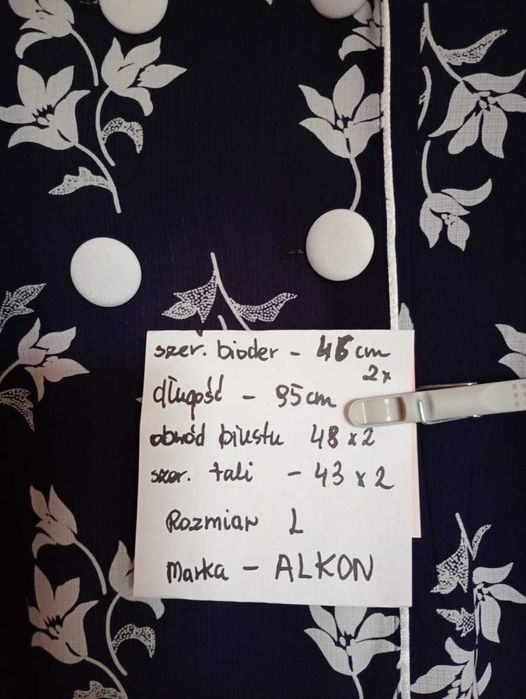 szer. bioder - 46 cm
2x
długość - 95cm
obwód biustu 48 x 2
szer. tali - 43 x 2
Rozmiar L
Marka - ALKON